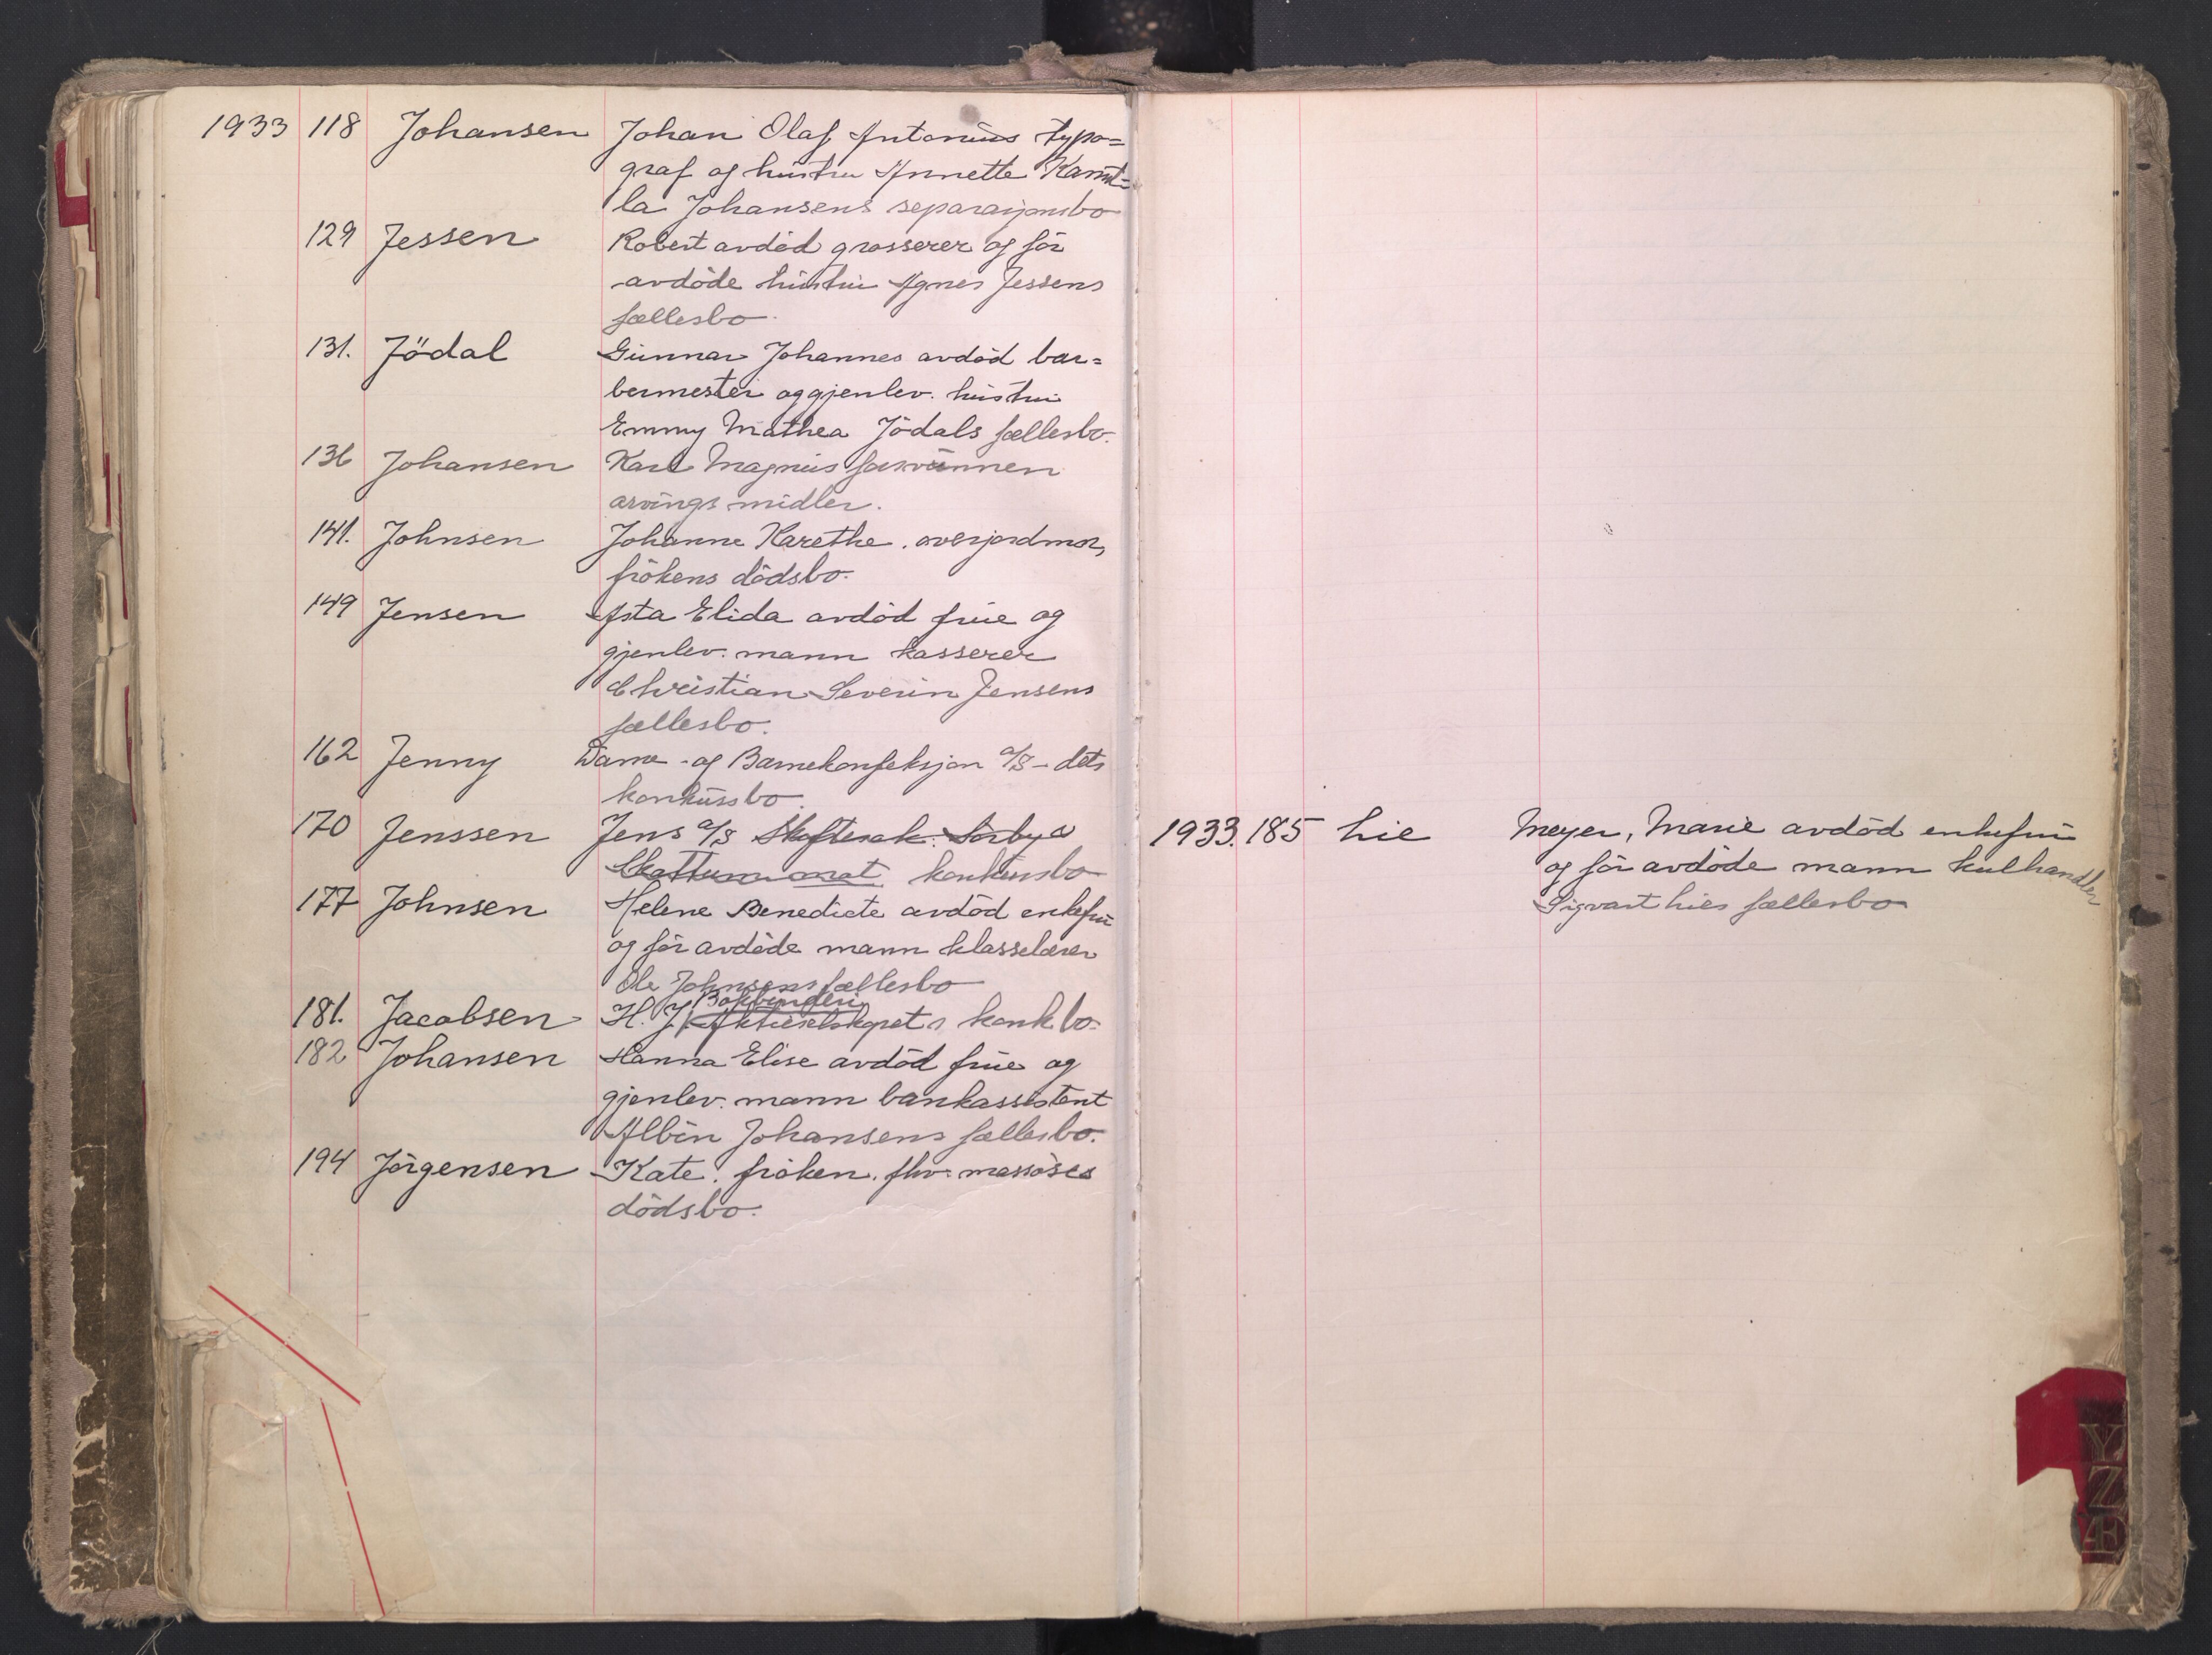 1933 118 Johansen Johan Olaf Antonius typo=
graf og hustru Annette Kamil=
la Johansens separasjonsbo
129 Jessen Robert avdöd grosserer og för
avdöde hustru Agnes Jessens
fællesbo.
131. Jödal Gunnar Johannes avdöd bar=
bermester og gjenlev. hustru
Emmy Mathea Jödals fællesbo.
136 Johansen Karl Magnus forsvunnen
arvings midler.
141. Johnsen Johanne Karethe. overjordmor,
frökens dödsbo.
149 Jensen Asta Elida avdöd frue og
gjenlev. mann kasserer
Christian Severin Jensens
fællesbo.
162 Jenny Dame- og Barnekonfeksjon A/S - dets
konkursbo.
170 Jenssen Jens A/S
konkursbo
177 Johnsen Helene Benedicte avdöd enkefru
og för avdöde mann klasselærer
Ole Johnsens fællesbo
Bokbinderi
181. Jacobsen H. J. Aktieselskapets konk.bo.
182 Johansen Hanna Elise avdöd frue og
gjenlev. mann bankassistent
Albin Johansens fællesbo.
194 Jörgensen Kate. fröken. fhv. massöses
dödsbo.
1933. 185 Lie Meyer, Marie avdöd enkefru
og för avdöde mann kulhandler
Sigvart Lies fællesbo
Y
Z
Æ